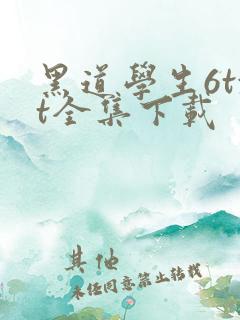 黑道學生6tx
t全集下載
其他
未经同意禁止转载